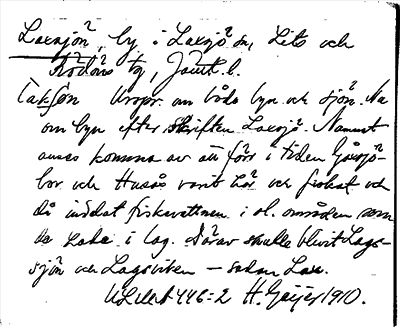 Laxsjön, by i Laxsjö sn, Lits och
Rödöns tg, Jämtl. l.
Uvspr. om både byn och sjön. Na
om byn efter skriften Laxsjö. Namnet
anses komma av att förr i tiden
bor och Husås varit här och fiskat och
då indelat fiskevattnen i ol. områden som
de kalla i lag. Därav skulle blivit Lags-
sjön och Lagsviken – sedan Lax.
ULMA 446:2 H. Geijer 1910.